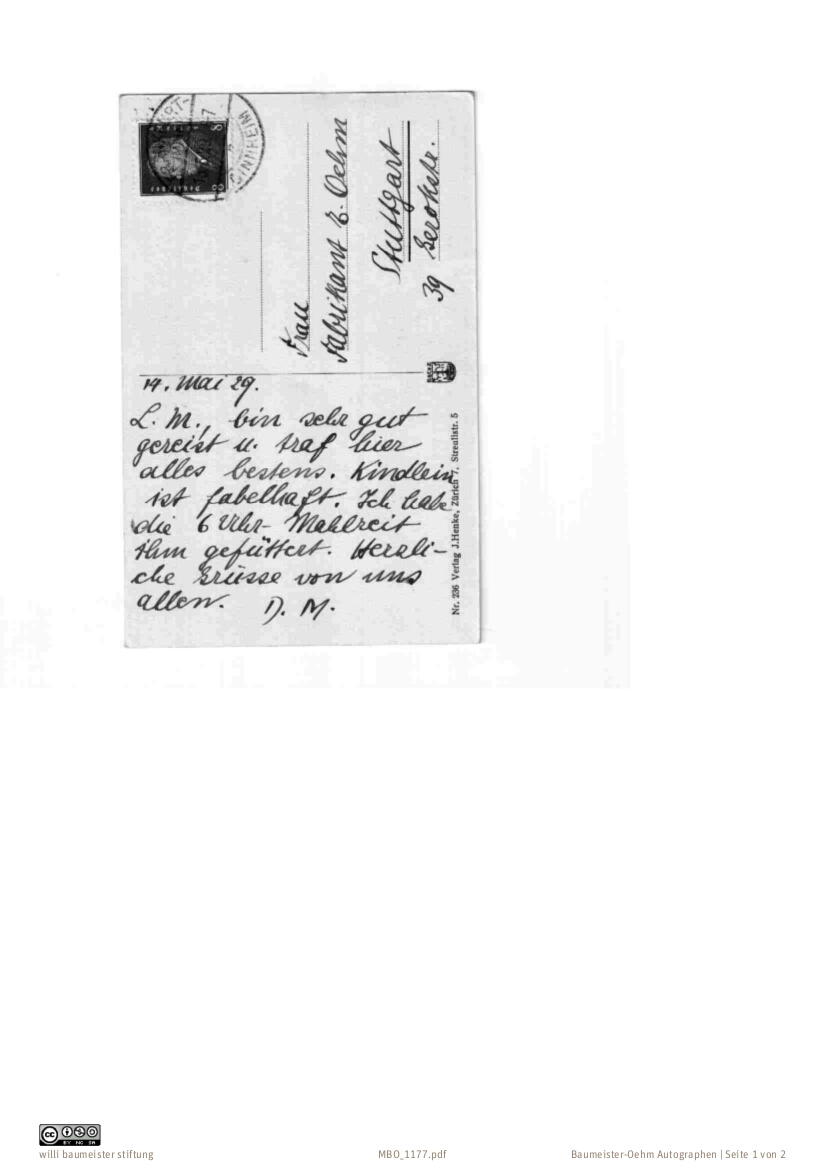 Frau
Fabrikant E. Oehm
Stuttgart
39 Gerokstr.
14. Mai 29.
L. M., bin sehr gut
gereist u. traf hier
alles bestens. Kindlein
ist fabelhaft. Ich habe
die 6 Uhr-Mahlzeit
ihm gefüttert. Herzli-
che Grüsse von uns
allen. D. M.
Nr. 236 Verlag J.Henke, Zürich 7, Streulistr. 5
BY NC SA
willi baumeister stiftung
MBO_1177.pdf
Baumeister-Oehm Autographen | Seite 1 von 2